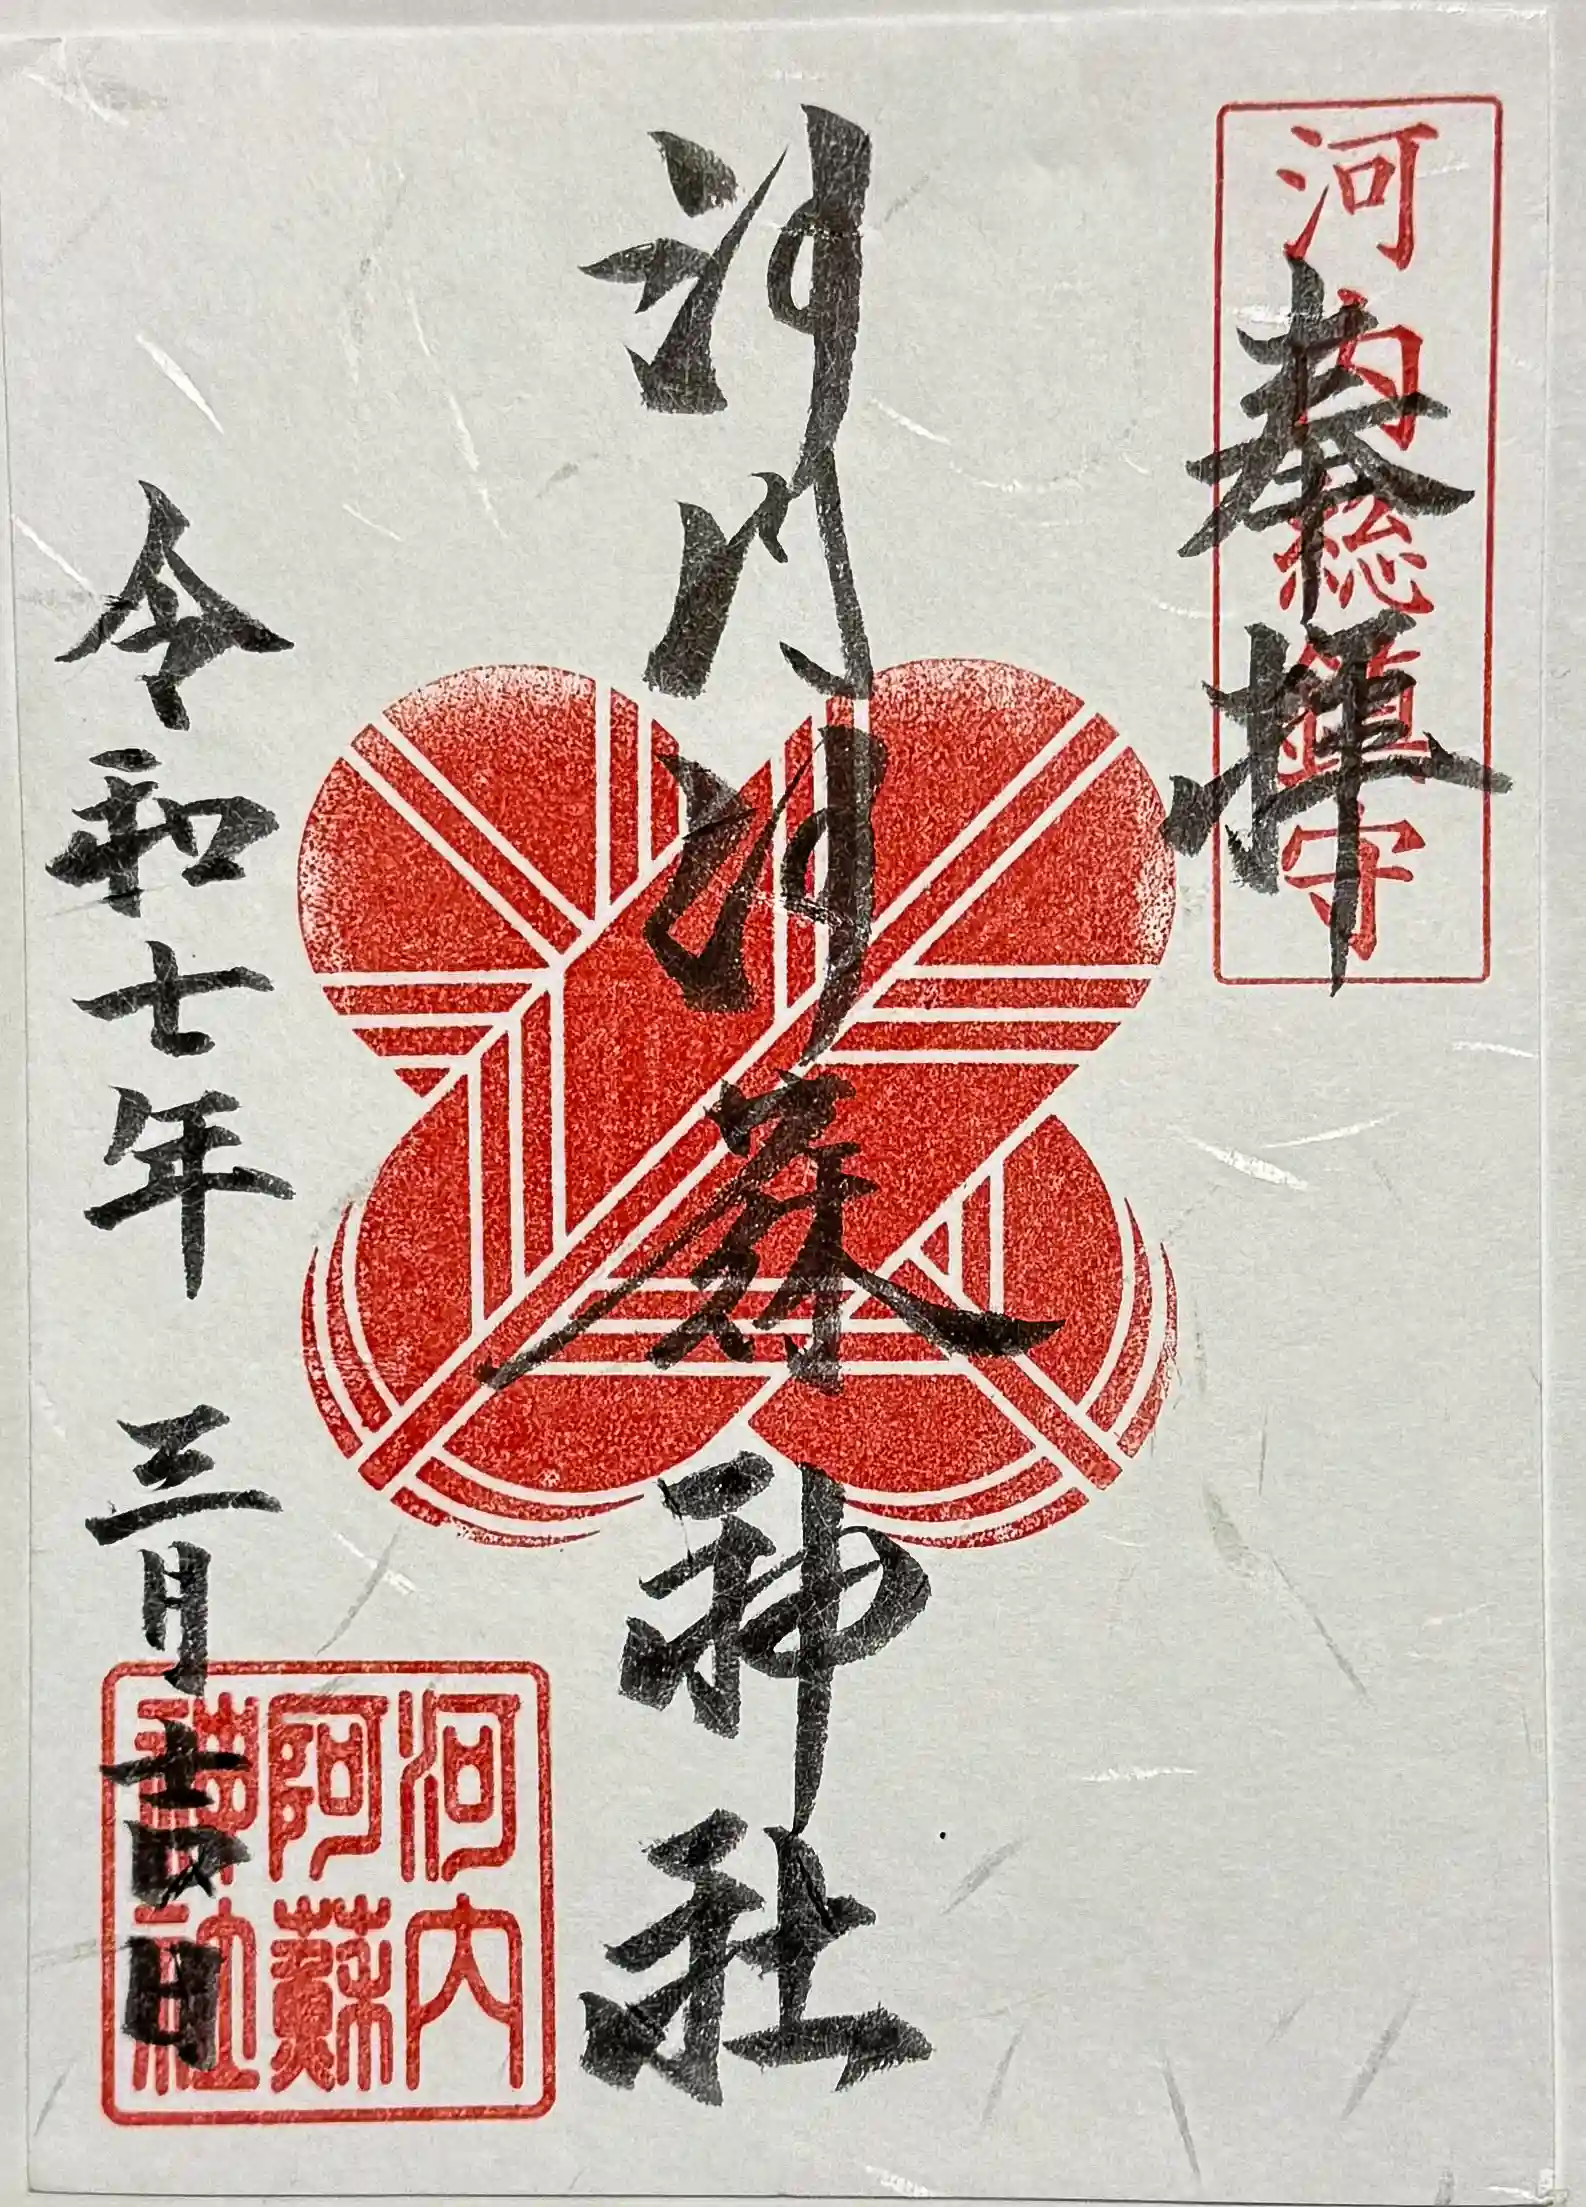 河内総鎮守
奉拝
河内阿蘇神社
令和七年 三月十四日
河内
阿蘇
神社